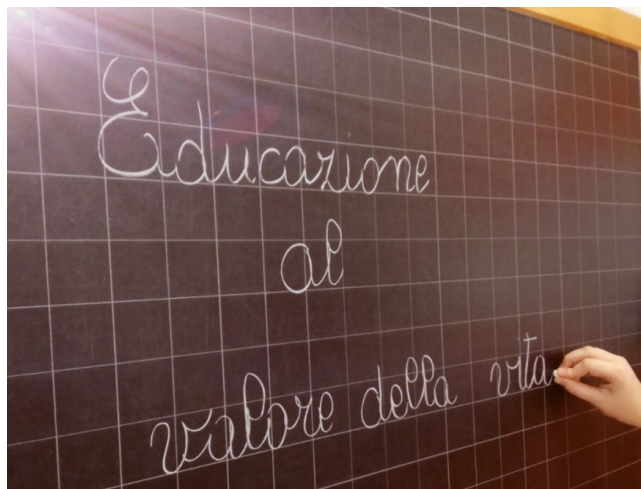 Educazione
al
valore della vita